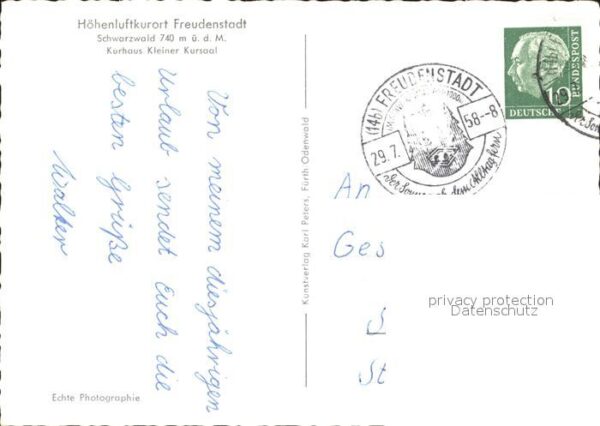 Höhenluftkurort Freudenstadt
Schwarzwald 740 m ü. d. M.
Kurhaus Kleiner Kursaal
Von meinem diesjährigen
Urlaub sendet Euch die
besten Grüße
Walter
Echte Photographie
Kunstverlag Karl Peters, Fürth Odenwald
(14b) FREUDENSTADT
29.7. 58.-8
10
DEUTSCHE
BUNDESPOST
An
Ges
S
St
privacy protection
Datenschutz